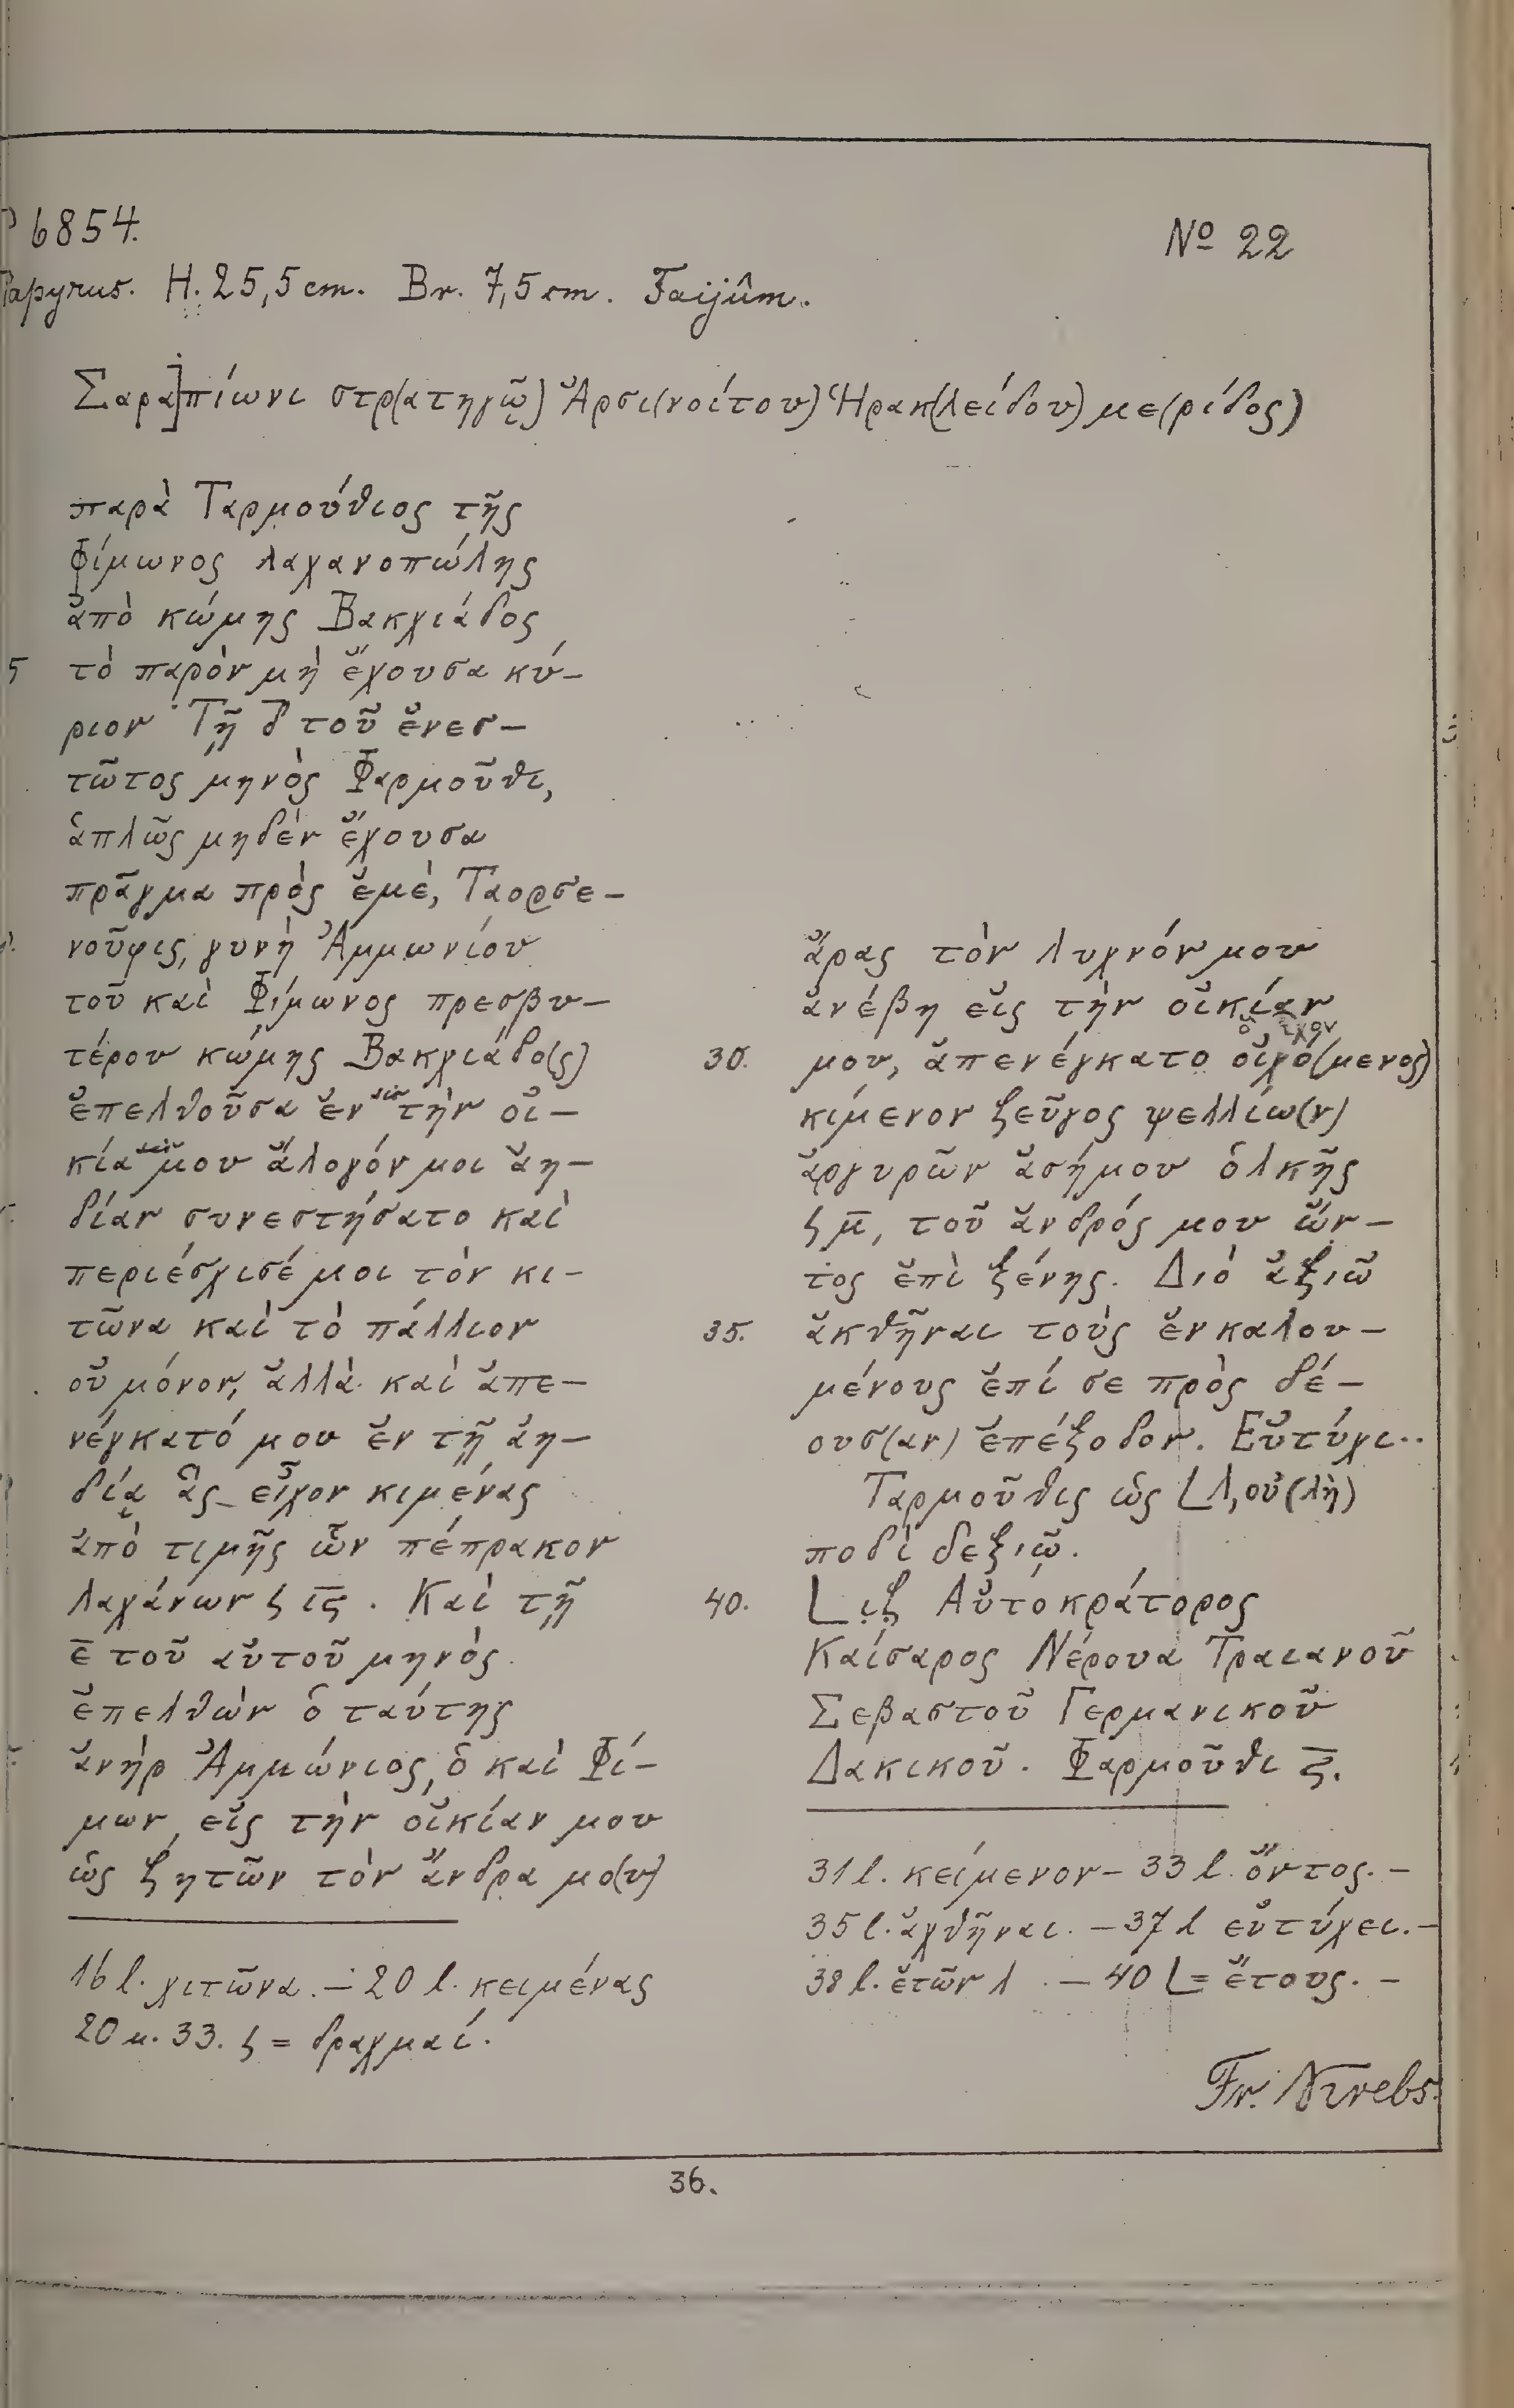 P 6854.
Nº 22
Papyrus. H. 25,5 cm. Br. 7,5 cm. Faijûm.
Σαρα]πίωνι στρ(ατηγῷ) Ἀρσι(νοίτου) Ἡρακ(λείδου) με(ρίδος)
παρὰ Ταρμούθιος τῆς
Φίμωνος λαχανοπώλης
ἀπὸ κώμης Βακχιάδος
5 τὸ παρὸν μὴ ἔχουσα κύ-
ριον· Τῇ δ̅ τοῦ ἐνεσ-
τῶτος μηνὸς Φαρμοῦθι,
ἁπλῶς μηδὲν ἔχουσα
πρᾶγμα πρὸς ἐμέ, Ταορσε-
νοῦφις, γυνὴ Ἀμμωνίου
τοῦ καὶ Φίμωνος πρεσβυ-
τέρου κώμης Βακχιάδο(ς)
ἐπελθοῦσα ἐν τὴν οἰ-
κία μου ἄλογόν μοι ἀη-
δίαν συνεστήσατο καὶ
περιέσχισέ μοι τὸν κι-
τῶνα καὶ τὸ πάλλιον
οὐ μόνον, ἀλλὰ καὶ ἀπε-
νέγκατό μου ἐν τῇ ἀη-
δίᾳ ἃς εἶχον κιμένας
ἀπὸ τιμῆς ὧν πέπρακον
λαχάνων ϛ ι̅ϛ̅. Καὶ τῇ
ε̅ τοῦ αὐτοῦ μηνὸς
ἐπελθὼν ὁ ταύτης
ἀνὴρ Ἀμμώνιος, ὁ καὶ Φί-
μων, εἰς τὴν οἰκίαν μου
ὡς ζητῶν τὸν ἄνδρα μο(υ)
16 l. χιτῶνα. – 20 l. κειμένας
20 u. 33. ϛ = δραχμαί.
ἄρας τὸν λυχνόν μου
ἀνέβη εἰς τὴν οἰκίαν
30. μου, ἀπενέγκατο οἰχό(μενος)
κίμενον ζεῦγος ψελλίω(ν)
ἀργυρῶν ἀσήμου ὁλκῆς
ϛ μ̅, τοῦ ἀνδρός μου ὤν-
τος ἐπὶ ξένης. Διὸ ἀξιῶ
35. ἀκθῆναι τοὺς ἐνκαλου-
μένους ἐπί σε πρὸς δέ-
ουσ(αν) ἐπέξοδον. Εὐτύχι..
Ταρμοῦθις ὡς L λ, οὐ(λὴ)
ποδὶ δεξιῷ.
40. L ιζ Αὐτοκράτορος
Καίσαρος Νέρουα Τραιανοῦ
Σεβαστοῦ Γερμανικοῦ
Δακικοῦ. Φαρμοῦθι ϛ̅.
31 l. κείμενον – 33 l. ὄντος. –
35 l. ἀχθῆναι. – 37 l εὐτύχει. –
38 l. ἐτῶν λ. – 40 L = ἔτους. –
Fr. Krebs.
36.